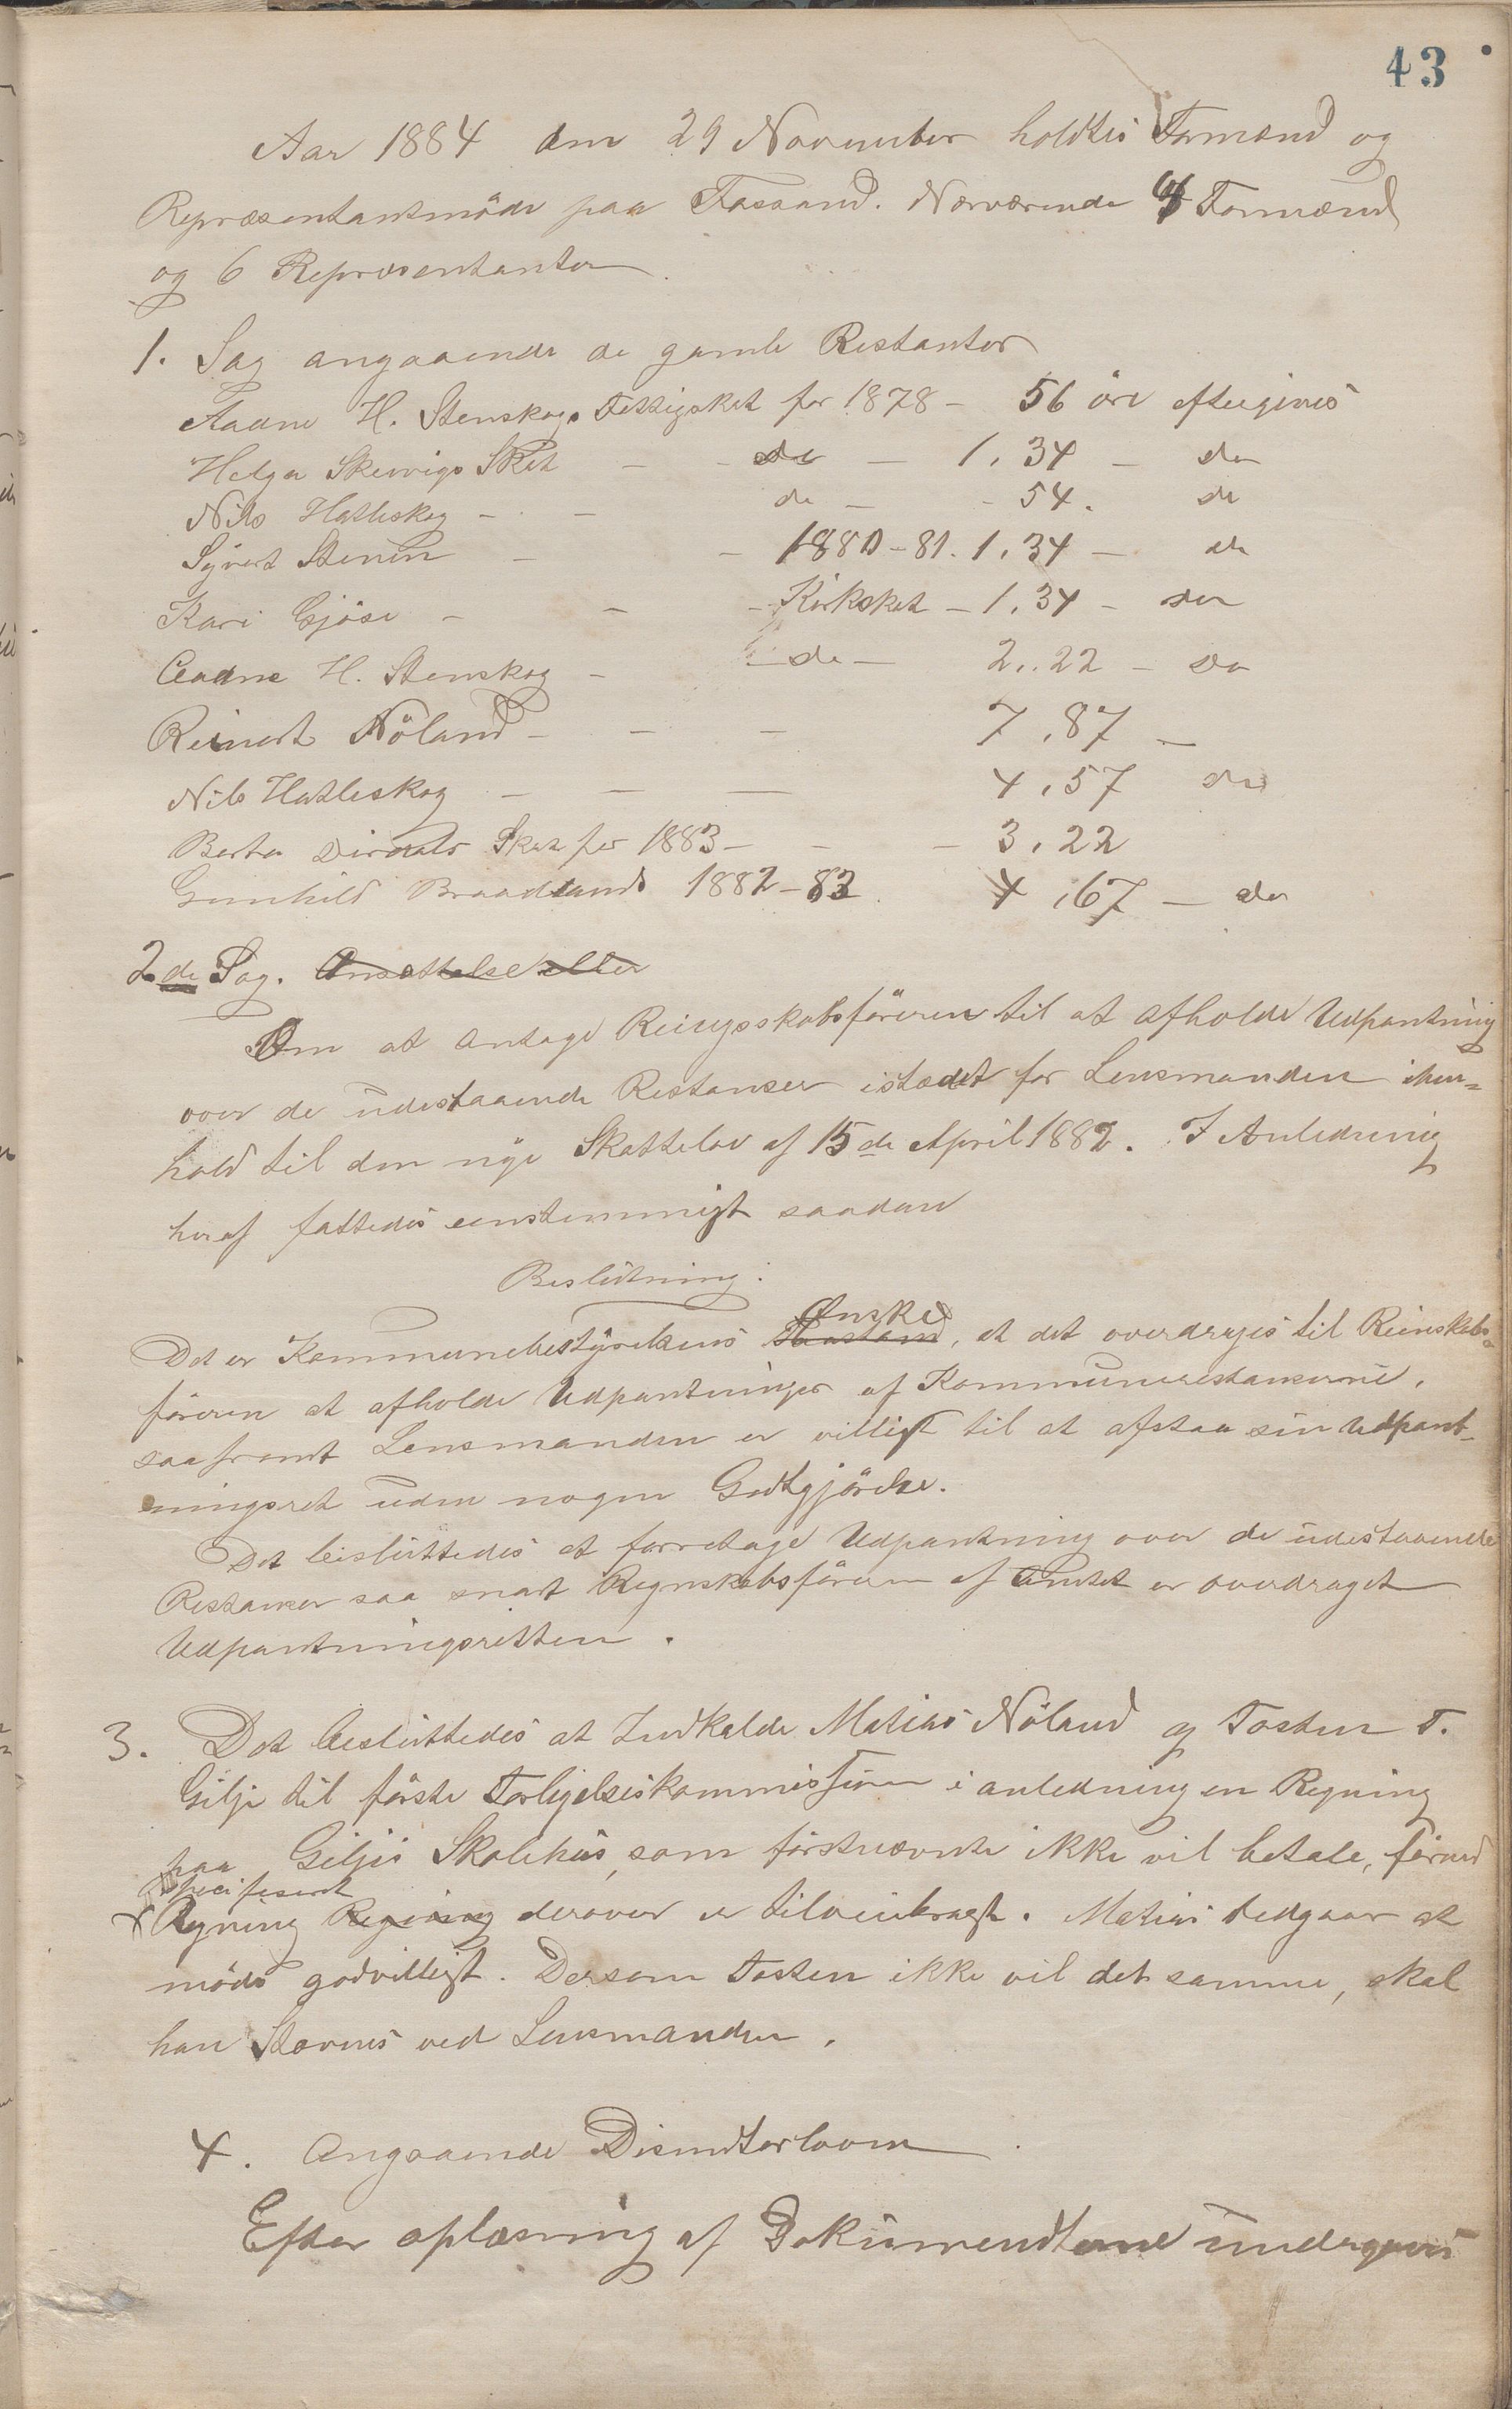 43
Aar 1884 den 29 November holdtes Formænd og
Repræsentantmöde paa Fossand. Nærværende 4 Formænd
og 6 Repræsentanter.
1. Sag angaaende de gamle Restantser
Aadne H. Stenskogs Fattigskat for 1878 - 56 öre eftergives
Helga Skervigs Skat - do - 1,34 - do
Nils Hatleskog - - do - - 54. do
Syvert Stenen - - 1880-81. 1,34 - do
Kari Gjöse - - - Kirkskat - 1,34 - do
Aadne H. Stenskog - - do - 2,22 - do
Reinert Nöland - - - 7,87 -
Nils Hatleskog - - - 4,57 do
Berta Dirdals Skat for 1883 - - - 3,22
Gunhild Braadlands 1882-83. 4,67 - do
2de Sag. Ansættelse eller
Om at antage Reingsskabsföreren til at afholde Udpantning
over de udestaaende Restanser istædet for Lensmanden ihen=
hold til den nye Skattelov af 15de April 1882. I Anledning
heraf fattedes eenstemmigt saadan
Beslutning:
Ønske
Det er Kommunebestyrelsens, at det overdrages til Reinskabs=
föreren at afholde Udpantninger af Kommunerestanserne,
saafremt Lensmanden er villigt til at afstaa sin Udpant-
ningsret uden nogen Godtgjörelse.
Det besluttedes at forretage Udpantning over de udestaaende
Restanser saa snart Regnskabsföreren af Amtet er overdraget
Udpantningsretten.
3. Det besluttedes at Indkalde Matias Nöland og Tosten T.
Gilje til förste Forligelseskommission i anledning en Regning
paa Giljes Skolehus, som förstnævnte ikke vil betale, förend
specifisert
Regning Regning derover er tilveiebragt. Matias vedgaar at
möde godvilligt. Dersom Tosten ikke vil det samme, skal
han Stævnes ved Lensmanden.
4. Angaaende Disentorloven
Efter oplæsning af Dokumendtene undergives